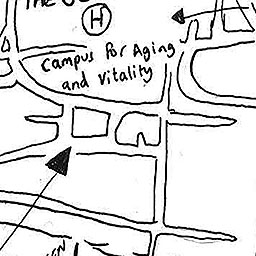 The
H
Campus for Aging
and Vitality